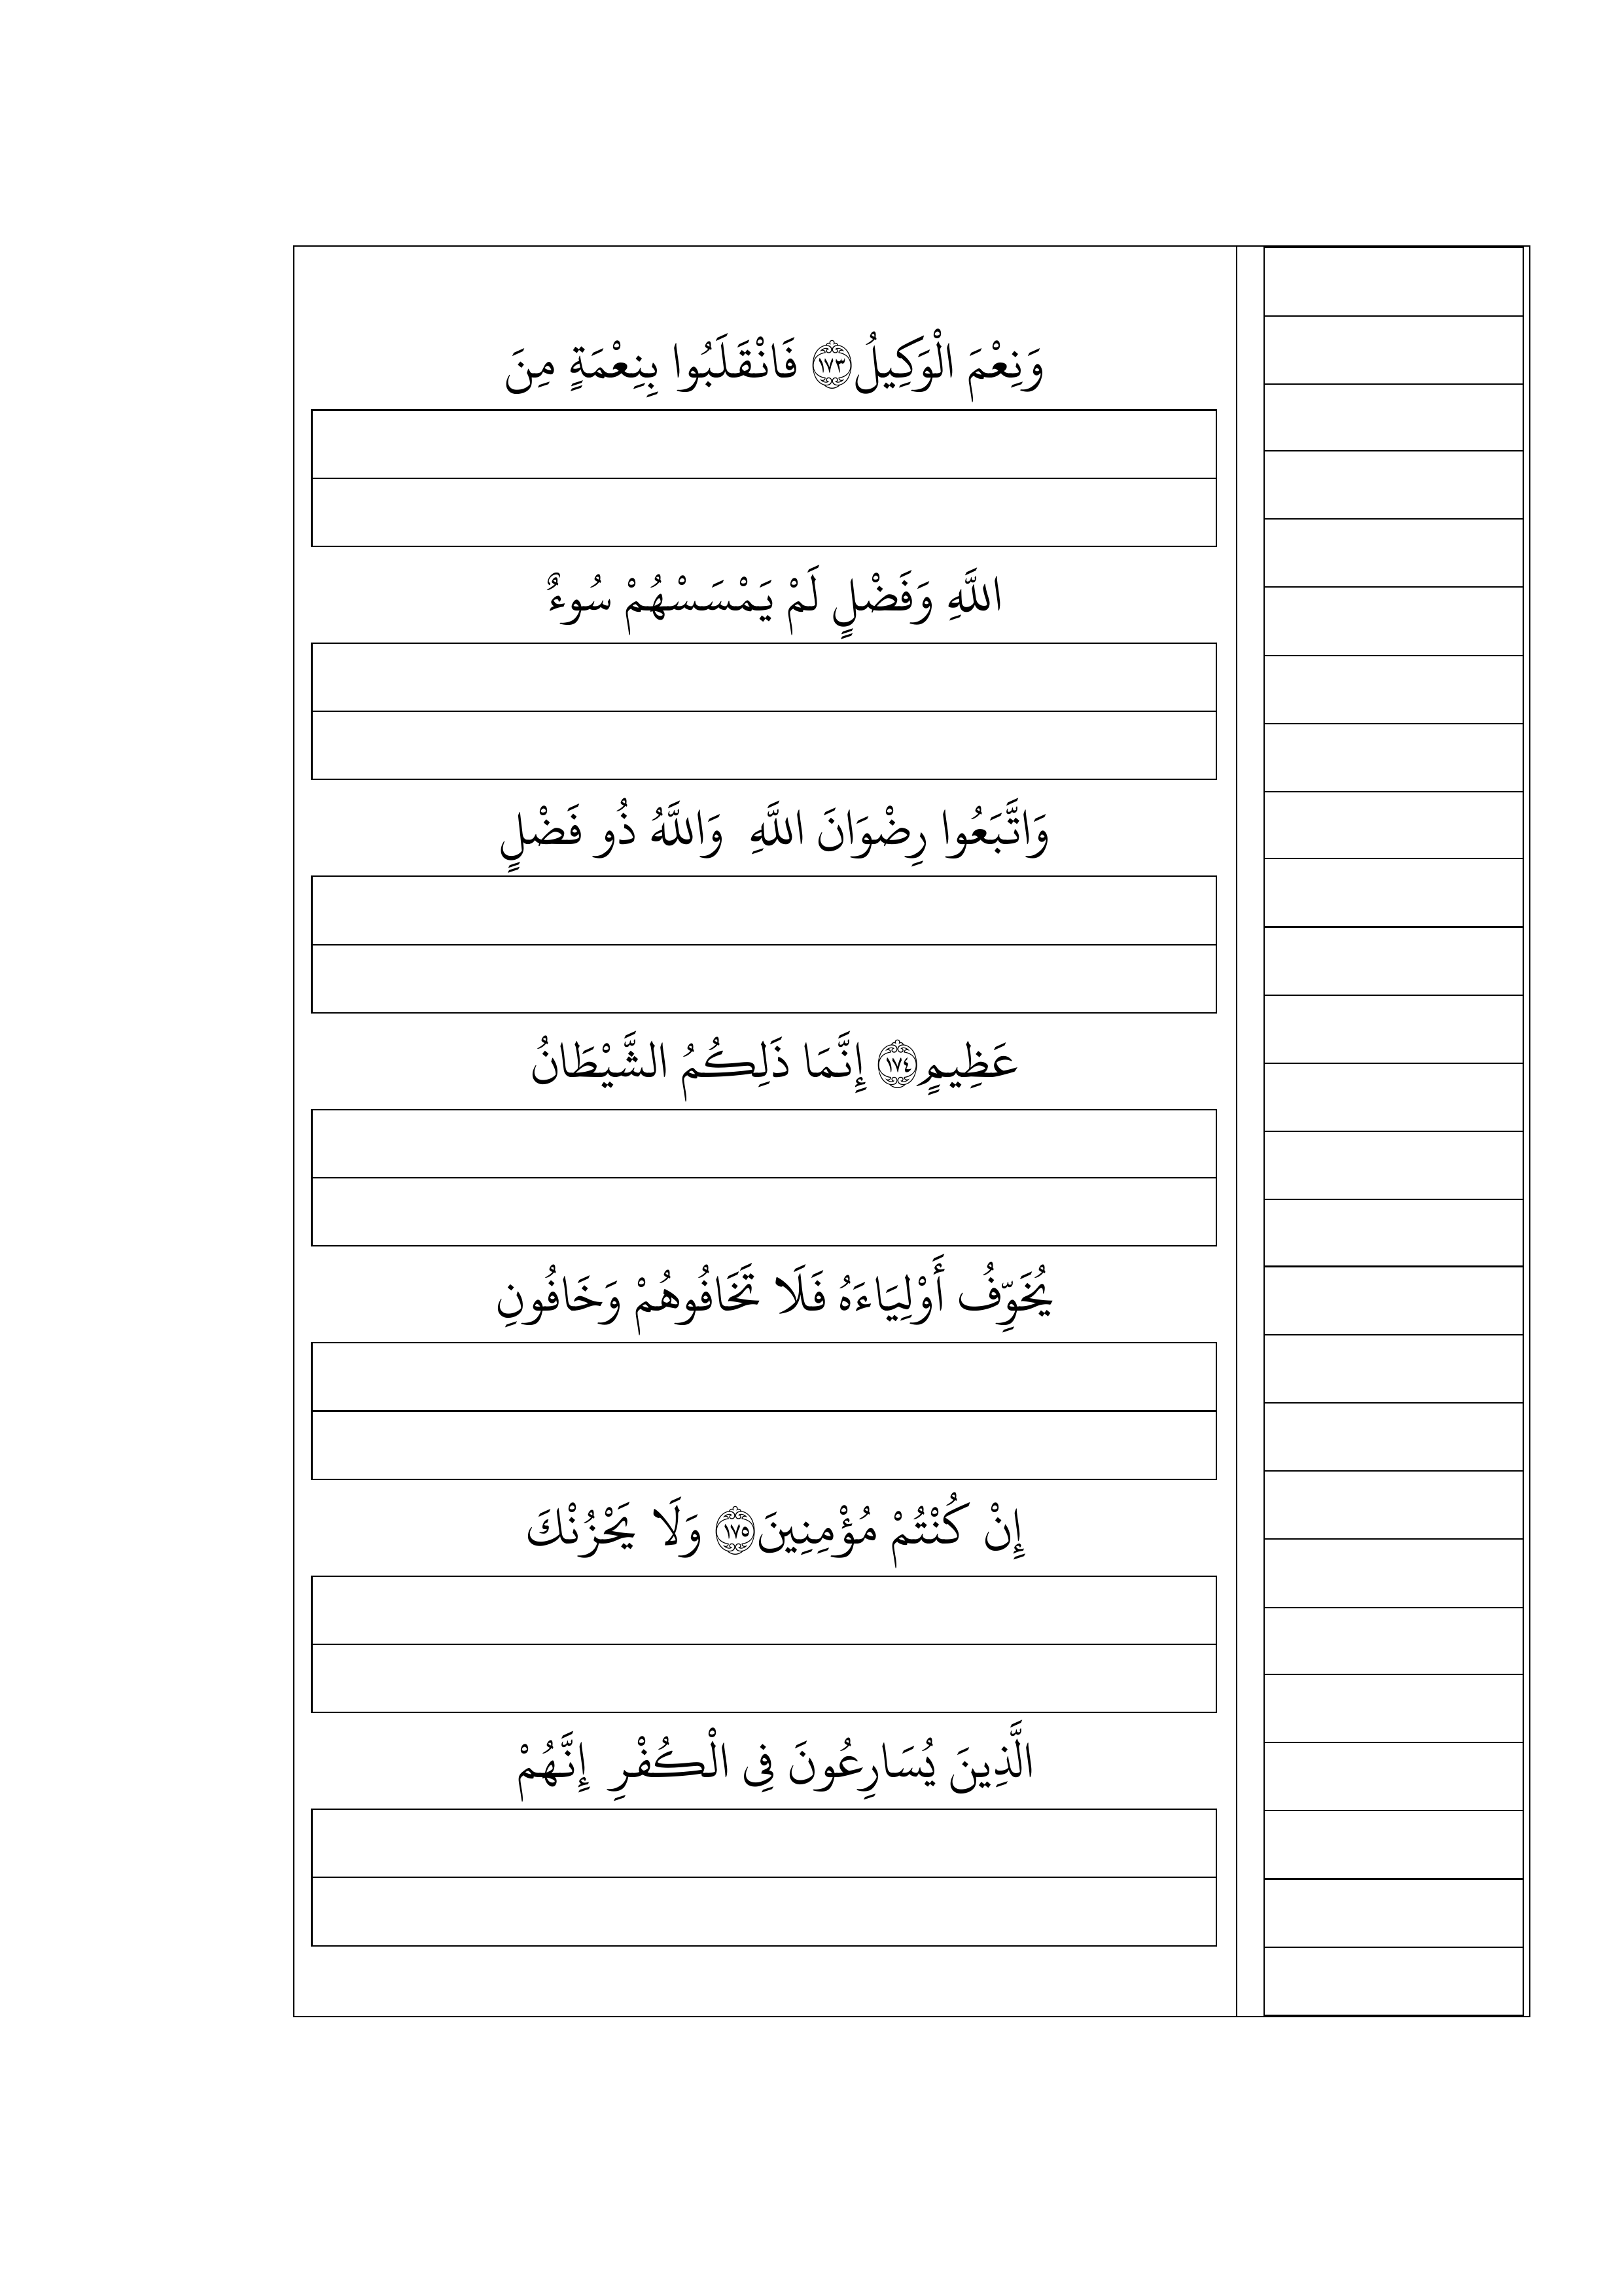 وَنِعْمَ الْوَكِيلُ ۝١٧٣ فَانْقَلَبُوا بِنِعْمَةٍ مِنَ
اللَّهِ وَفَضْلٍ لَمْ يَمْسَسْهُمْ سُوءٌ
وَاتَّبَعُوا رِضْوَانَ اللَّهِ وَاللَّهُ ذُو فَضْلٍ
عَظِيمٍ ۝١٧٤ إِنَّمَا ذَلِكُمُ الشَّيْطَانُ
يُخَوِّفُ أَوْلِيَاءَهُ فَلَا تَخَافُوهُمْ وَخَافُونِ
إِنْ كُنْتُمْ مُؤْمِنِينَ ۝١٧٥ وَلَا يَحْزُنْكَ
الَّذِينَ يُسَارِعُونَ فِي الْكُفْرِ إِنَّهُمْ